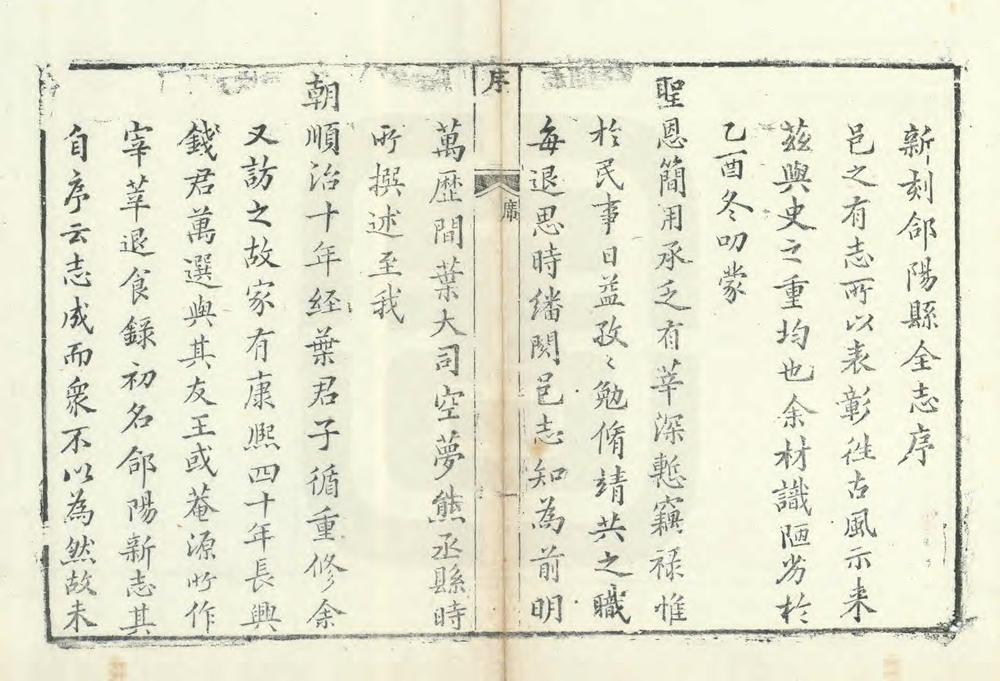 新刻郃陽縣全志序
邑之有志所以表彰徃古風示来
茲與史之重均也余材識陋劣於
乙酉冬叨蒙
聖恩簡用承乏有莘深慙竊祿惟
於民事日益孜〻勉脩靖共之職
每退思時繙閱邑志知為前明
序
席
一
萬歷間葉大司空夢熊丞縣時
所撰述至我
朝順治十年经葉君子循重修余
又訪之故家有康熙四十年長興
錢君萬選與其友王或菴源所作
宰莘退食錄初名郃陽新志其
自序云志成而衆不以為然故未